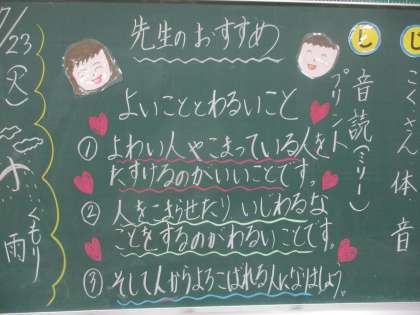 先生のおすすめ
よいこととわるいこと
① よわい人やこまっている人を
たすけるのがいいことです。
② 人をこまらせたり いじわるな
ことをするのがわるいことです。
③ そして人からよろこばれる人になりましょう。
じ
こくさん体音
と
音読(ミリー)
プリント
/23
(火)
くもり
雨